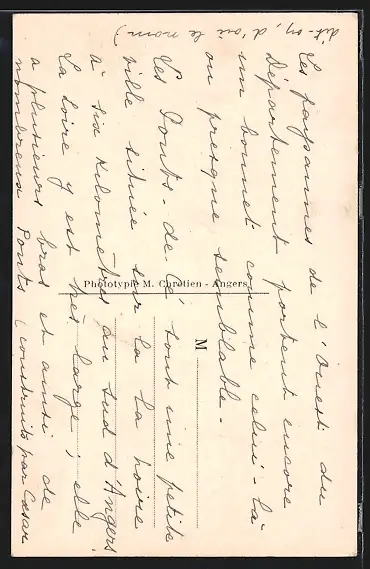 Les paysannes de l'Ouest du
Département portent encore
un bonnet comme celui-là
ou presque semblable.
Les Ponts-de-Cé, sont une petite
ville située sur la Loire
à six kilomètres au sud d'Angers.
La Loire y est très large ; elle
a plusieurs bras et aussi de
nombreux ponts (construits par César
dit-on, d'où le nom)
Phototypie M. Chrétien - Angers
M